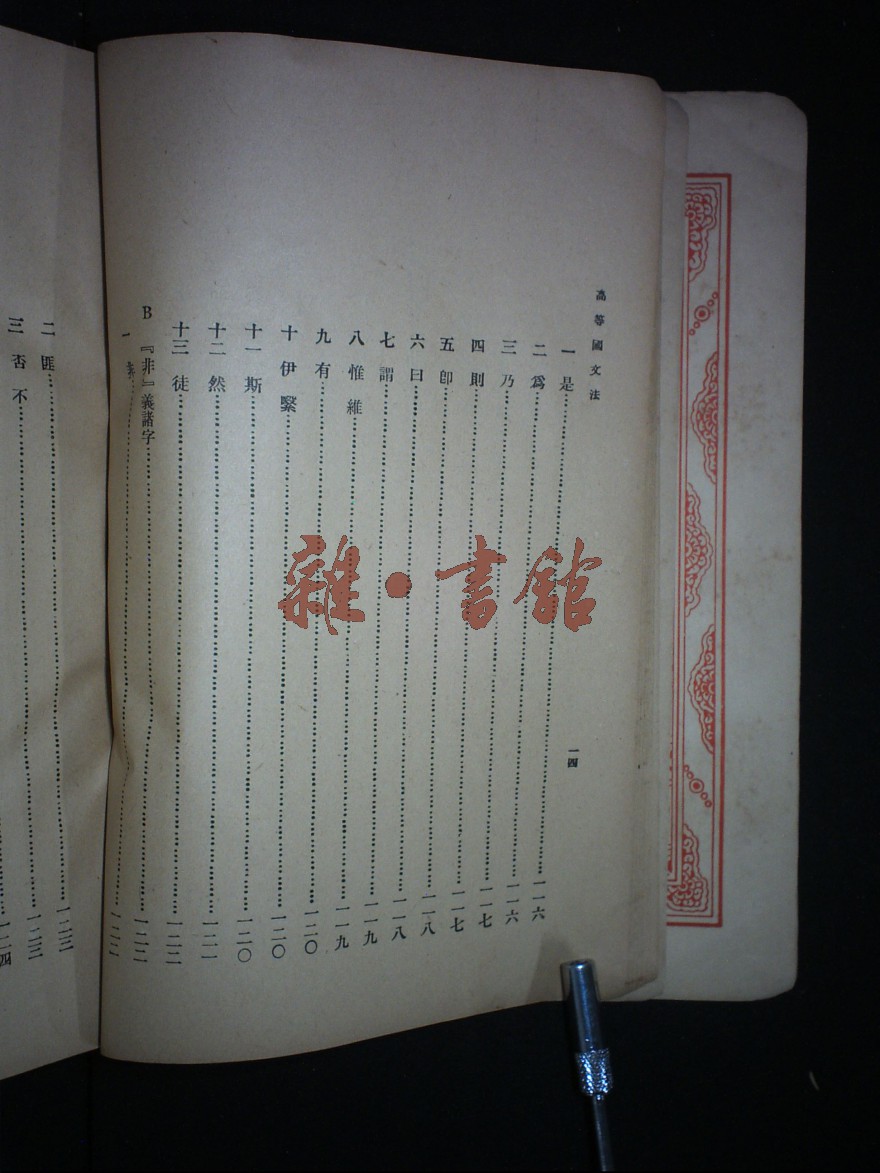 高等國文法 一四
一 是……………一一六
二 爲……………一一六
三 乃……………一一七
四 則……………一一七
五 卽……………一一八
六 曰……………一一八
七 謂……………一一九
八 惟 維……………一一九
九 有……………一二〇
十 伊 繄……………一二〇
十一 斯……………一二〇
十二 然……………一二一
十三 徒……………一二二
B 『非』義諸字……………一二二
一 非……………一二二
二 匪……………一二三
三 否 不……………一二三
一二四
雜·書館